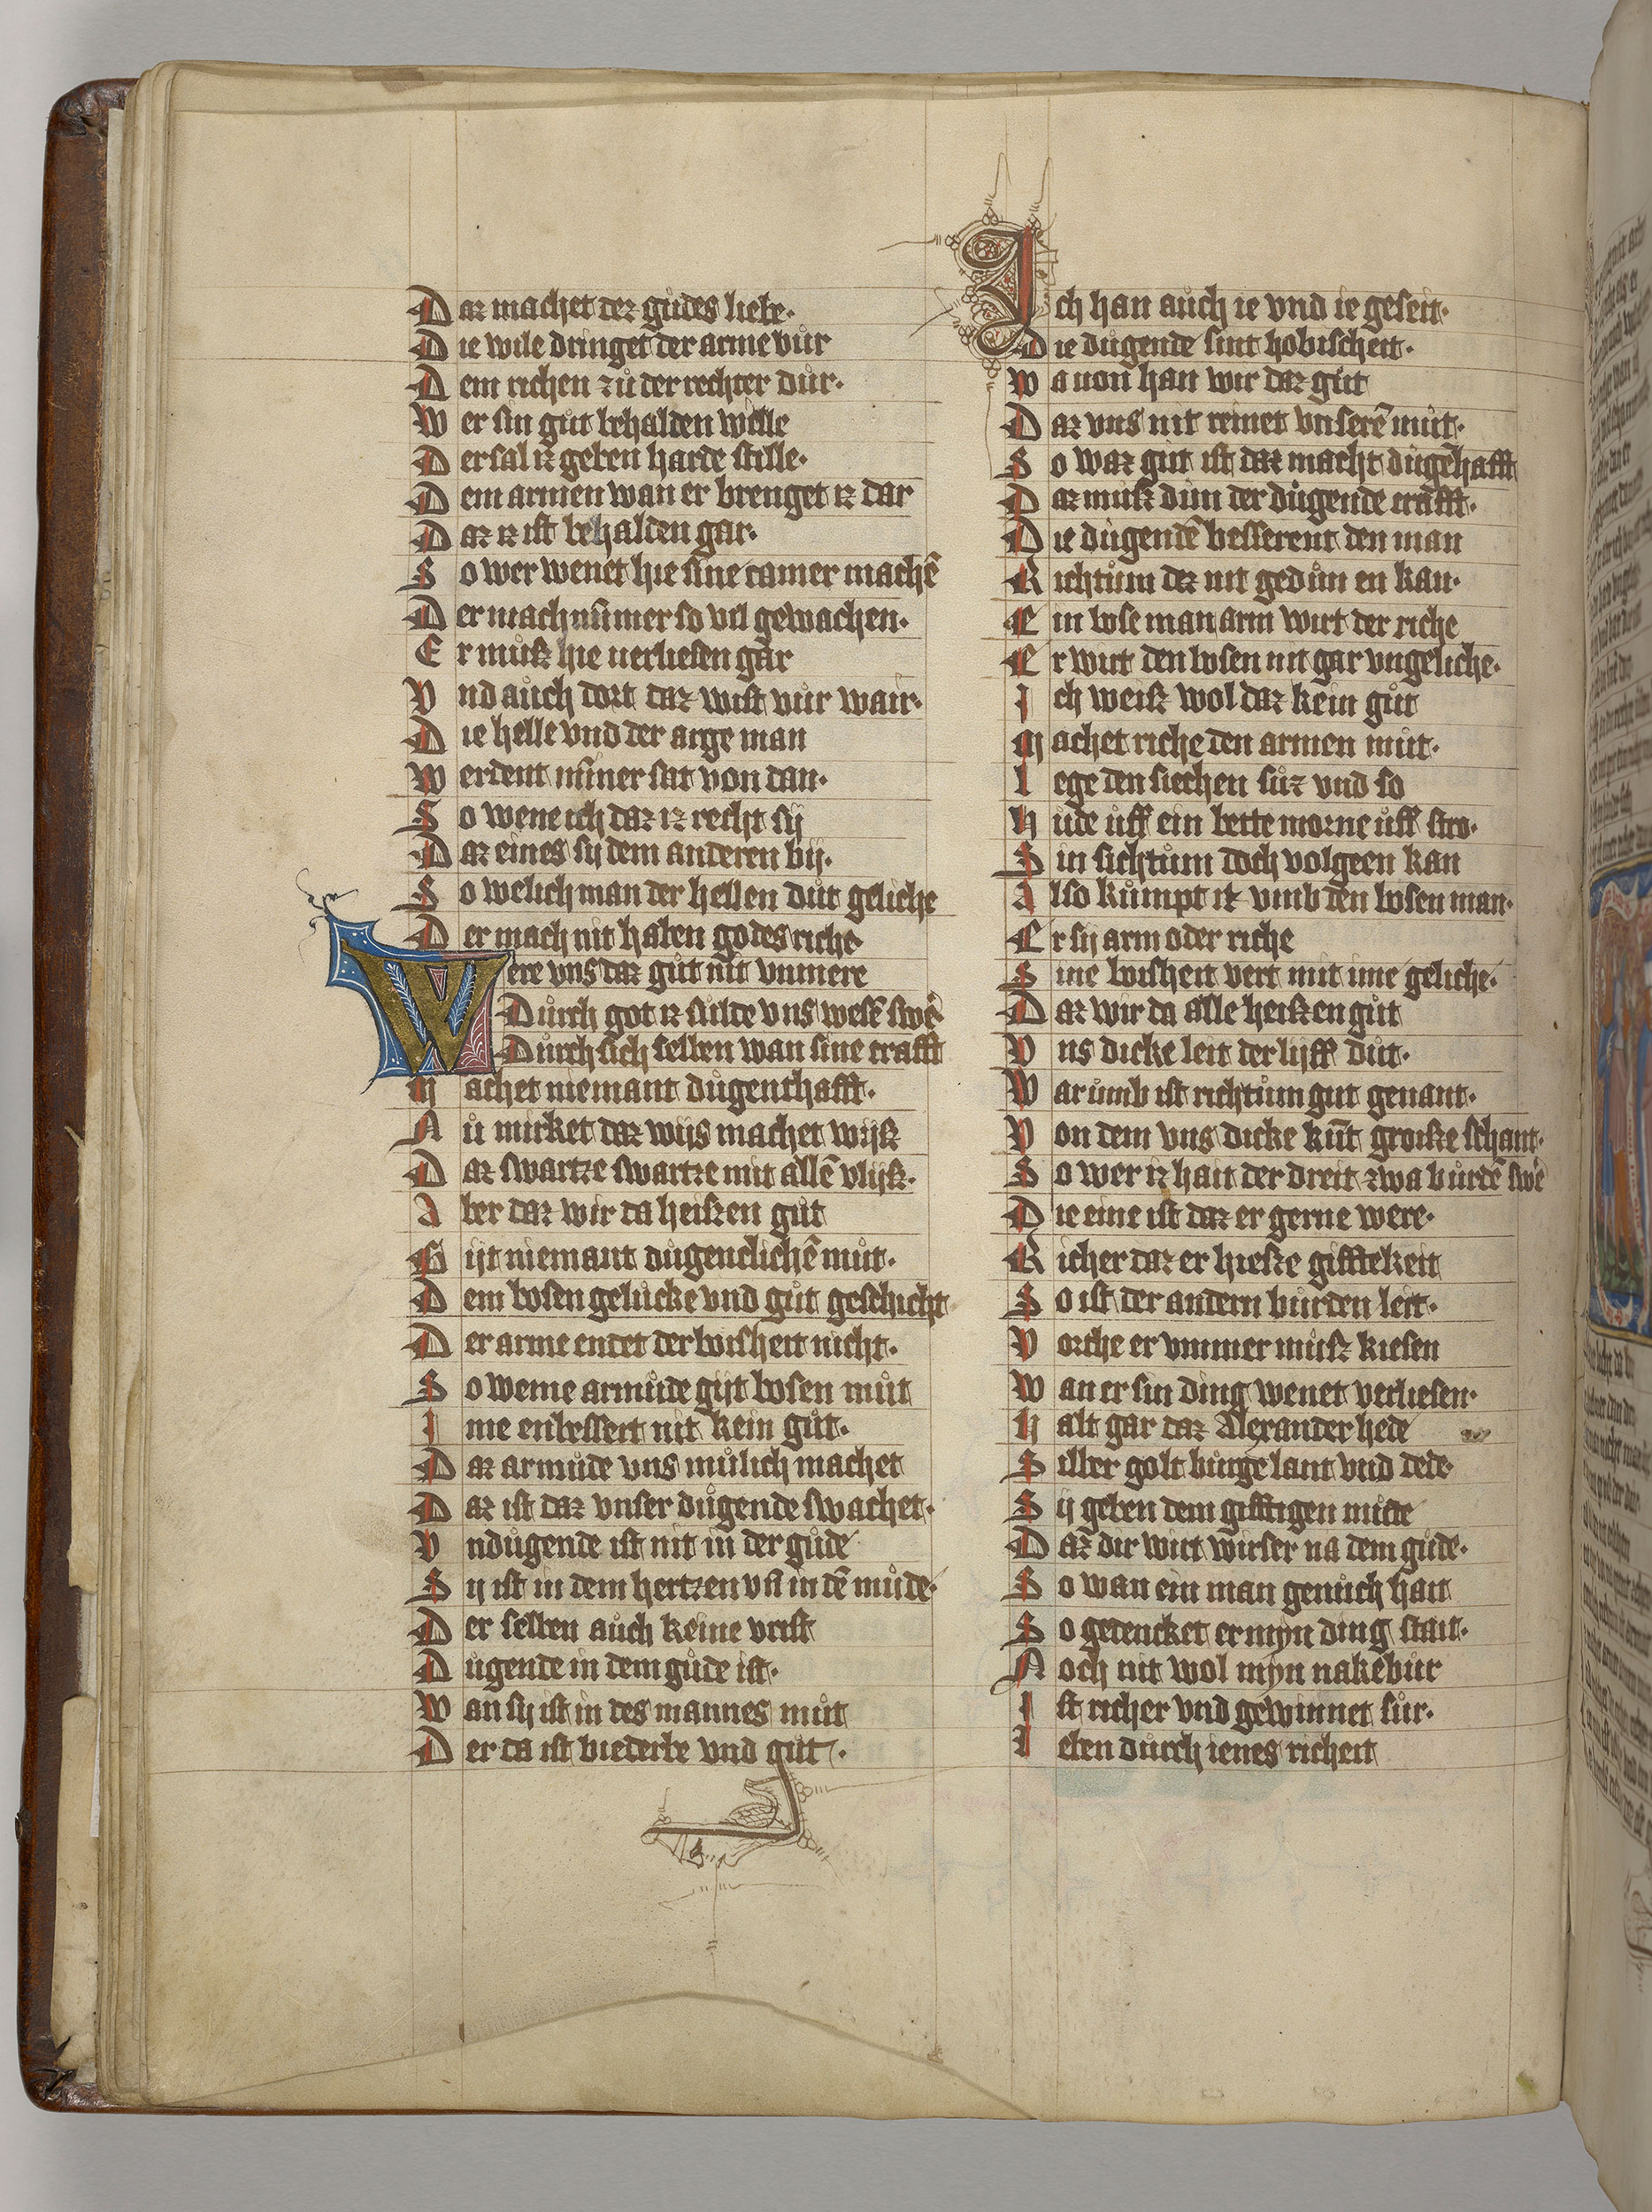 Daz machet dez gůdes liebe·
Die wile dringet der arme vůr
Dem richen zů der rechter důr·
Wer sin gůt behalden wille
Der sal iz geben harde stille·
Dem armen wan er brenget iz dar
Daz iz ist behalden gar·
So wer wenet hie sine camer machē
Der mach nūmer so vil gewachen·
Er můsz hie uerliesen gar
Vnd aůch dort daz wist vůr wair·
Die helle vnd der arge man
Werdent nūmer sat von dan·
So wene ich daz iz recht sij
Daz eines sij dem anderen bij·
So welich man der hellen důt geliche
Der mach nit haben godes riche
Were vns daz gůt nit vnmere
Dúrch got iz sůlde vns wesē swē
Dúrch sich selben wan sine crafft
Machet niemant důgenthafft·
Nů mirket daz wijs machet wijsz
Daz swartze swartze mit allē vlijsz·
Aber daz wir da heiszen gůt
Gijt niemant důgentlichē můt·
Dem bosen gelůcke vnd gůt geschicht
Der arme entet der boisheit nicht·
So weme armůde gijt bosen můt
Ime enbessert nit kein gůt·
Daz armůde vns můlich machet
Daz ist daz vnser důgende swachet·
Vndůgende ist nit in der gůde
Sij ist in dem hertzen vn̄ in dē můde·
Der selben aůch keine vrist
Dugende in dem gůde ist·
Wan sij ist in des mannes můt
Der da ist biederbe vnd gůt·
Ich han aůch ie vnd ie geseit·
Die důgende sint hobischeit·
Wa uon han wir daz gůt
Daz vns nit reinet vnserē můt·
So waz gůt ist daz macht dugēhafft
Daz můsz důn der důgende crafft·
Die důgendē besserent den man
Richtům dez nit gedůn en kan·
Ein bose man arm wirt der riche
Er wirt den bosen nit gar vngeliche·
Ich weisz wol daz kein gůt
Machet riche den armen můt·
Lege den siechen sůz vnd so
Hude ůff ein bette morne ůff stro·
Sin sichtům doch volgeen kan
Also kůmpt iz vmb den bosen man·
Er sij arm oder riche
Sine boisheit vert mit ime geliche·
Daz wir da alle heiszen gůt
Vns dicke leit der lijff důt·
Warůmb ist richtům gut genant·
Von dem vns dicke kūt groisze schant·
So wer iz hait der dreit zwa bůrdē swē
Die eine ist daz er gerne were·
Richer daz er hiesze gifftekeit
So ist der andern bůrden leit·
Vorche er vmmer můsz kiesen
Wan er sin ding wenet verliesen·
Halt gar daz Alexander hede
Silber golt bůrge lant vnd dede·
Sij geben dem gifftigen můde
Daz dir wirt wirser na dem gůde·
So wan ein man genůch hait
So gedencket er myn ding stait·
Noch nit wol myn nakebůr
Ist richer vnd gewinnet sůr·
Leben dúrch ienes richeit